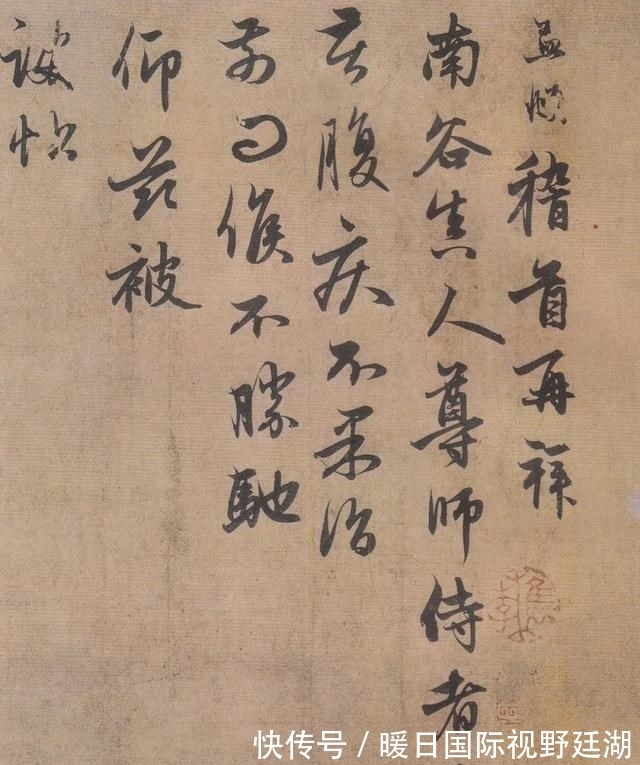 孟頫稽首再拜
南谷真人尊師侍者
苦腹疾不果詣
前问候不勝馳
仰茲被
誨帖
快传号 / 暖日国际视野廷湖